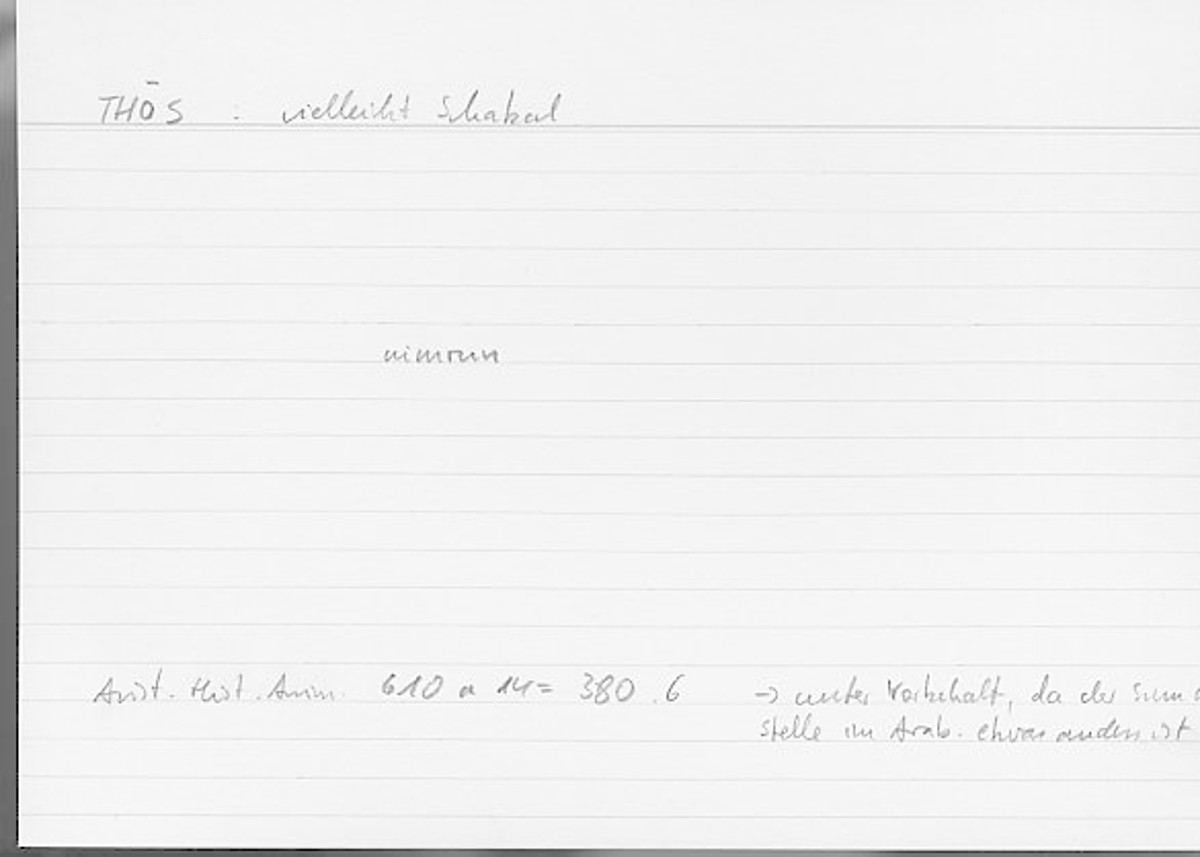 THŌS : vielleicht Schakal
nimrun
Arist. Hist. Anim. 610 a 14 = 380.6 → unter Vorbehalt, da der Sinn d
Stelle im Arab. etwas anders ist